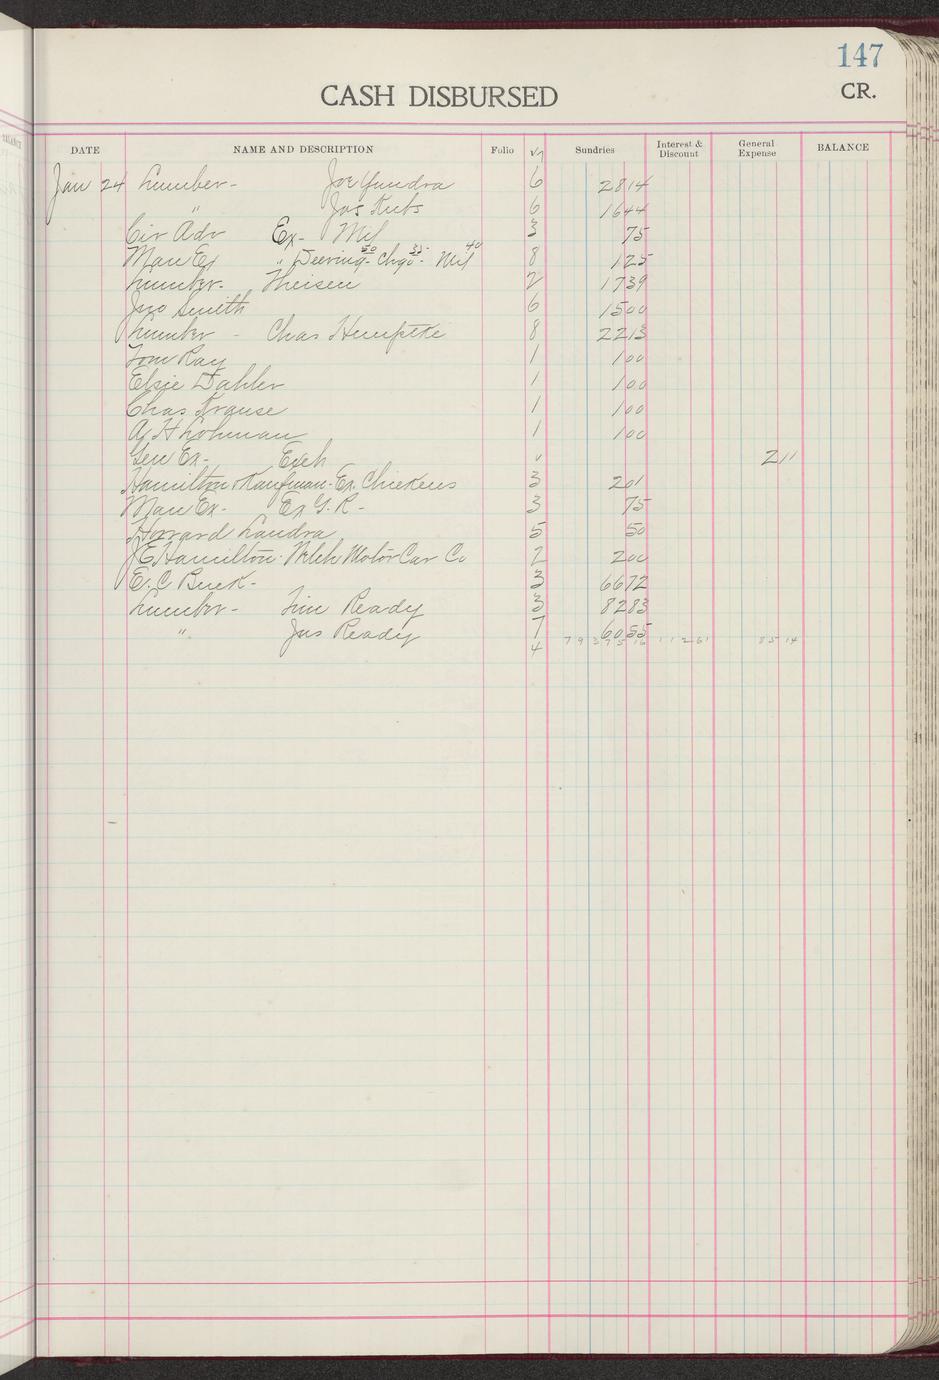 147
CASH DISBURSED
CR.
DATE NAME AND DESCRIPTION Folio Sundries Interest & Discount General Expense BALANCE
Jan 24 Lumber - Joe Yundra 6 2814
" Jos 6 1644
Cir Adv Ex - Mil 3 75
Man Ex " Deering 50 - Chgo 35 - Mil 40 8 125
Lumber - Theisen 2 1739
Jno Smith 6 1500
Lumber - Chas Hemptke 8 2213
Tom Ray 1 100
Elsie Dahler 1 100
Chas Krause 1 100
A H Lohman 1 100
Gen Ex - Exch 211
Hamilton & Kaufman - Ex. Chickens 3 201
Man Ex - Ex G. R - 3 75
Howard Landra 5 50
J E Hamilton - Welch Motor Car Co 2 200
E. C Buck - 3 6672
Lumber - Jim Ready 3 8283
" Jas Ready 7 6055
4 7937516 11261 8514